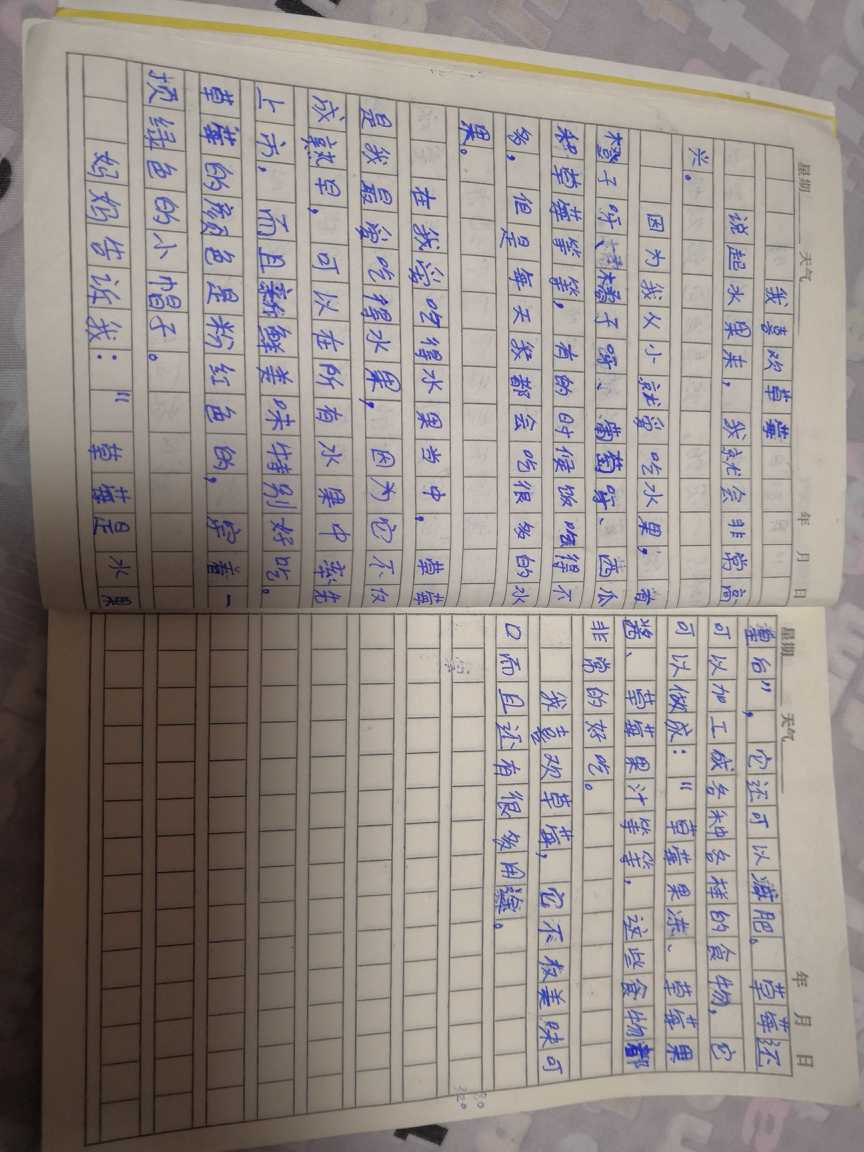 星期 天气 年 月 日
我喜欢草莓
说起水果来，我就会非常高
兴。
因为我从小就爱吃水果，有
橙子呀、橘子呀、葡萄呀、西瓜
和草莓等等，有的时候饭吃得不
多，但是每天我都会吃很多的水
果。
在我爱吃得水果当中，草莓
是我最爱吃得水果，因为它不仅
成熟早，可以在所有水果中率先
上市，而且新鲜美味特别好吃。
草莓的颜色是粉红色的，穿着一
顶绿色的小帽子。
妈妈告诉我：“草莓是水果
皇后”，它还可以减肥。草莓还
可以加工成各种各样的食物，它
可以做成：“草莓果冻、草莓果
酱、草莓果汁等等，这些食物都
非常的好吃。
我喜欢草莓，它不权美味可
口而且还有很多用途。
星期 天气 年 月 日